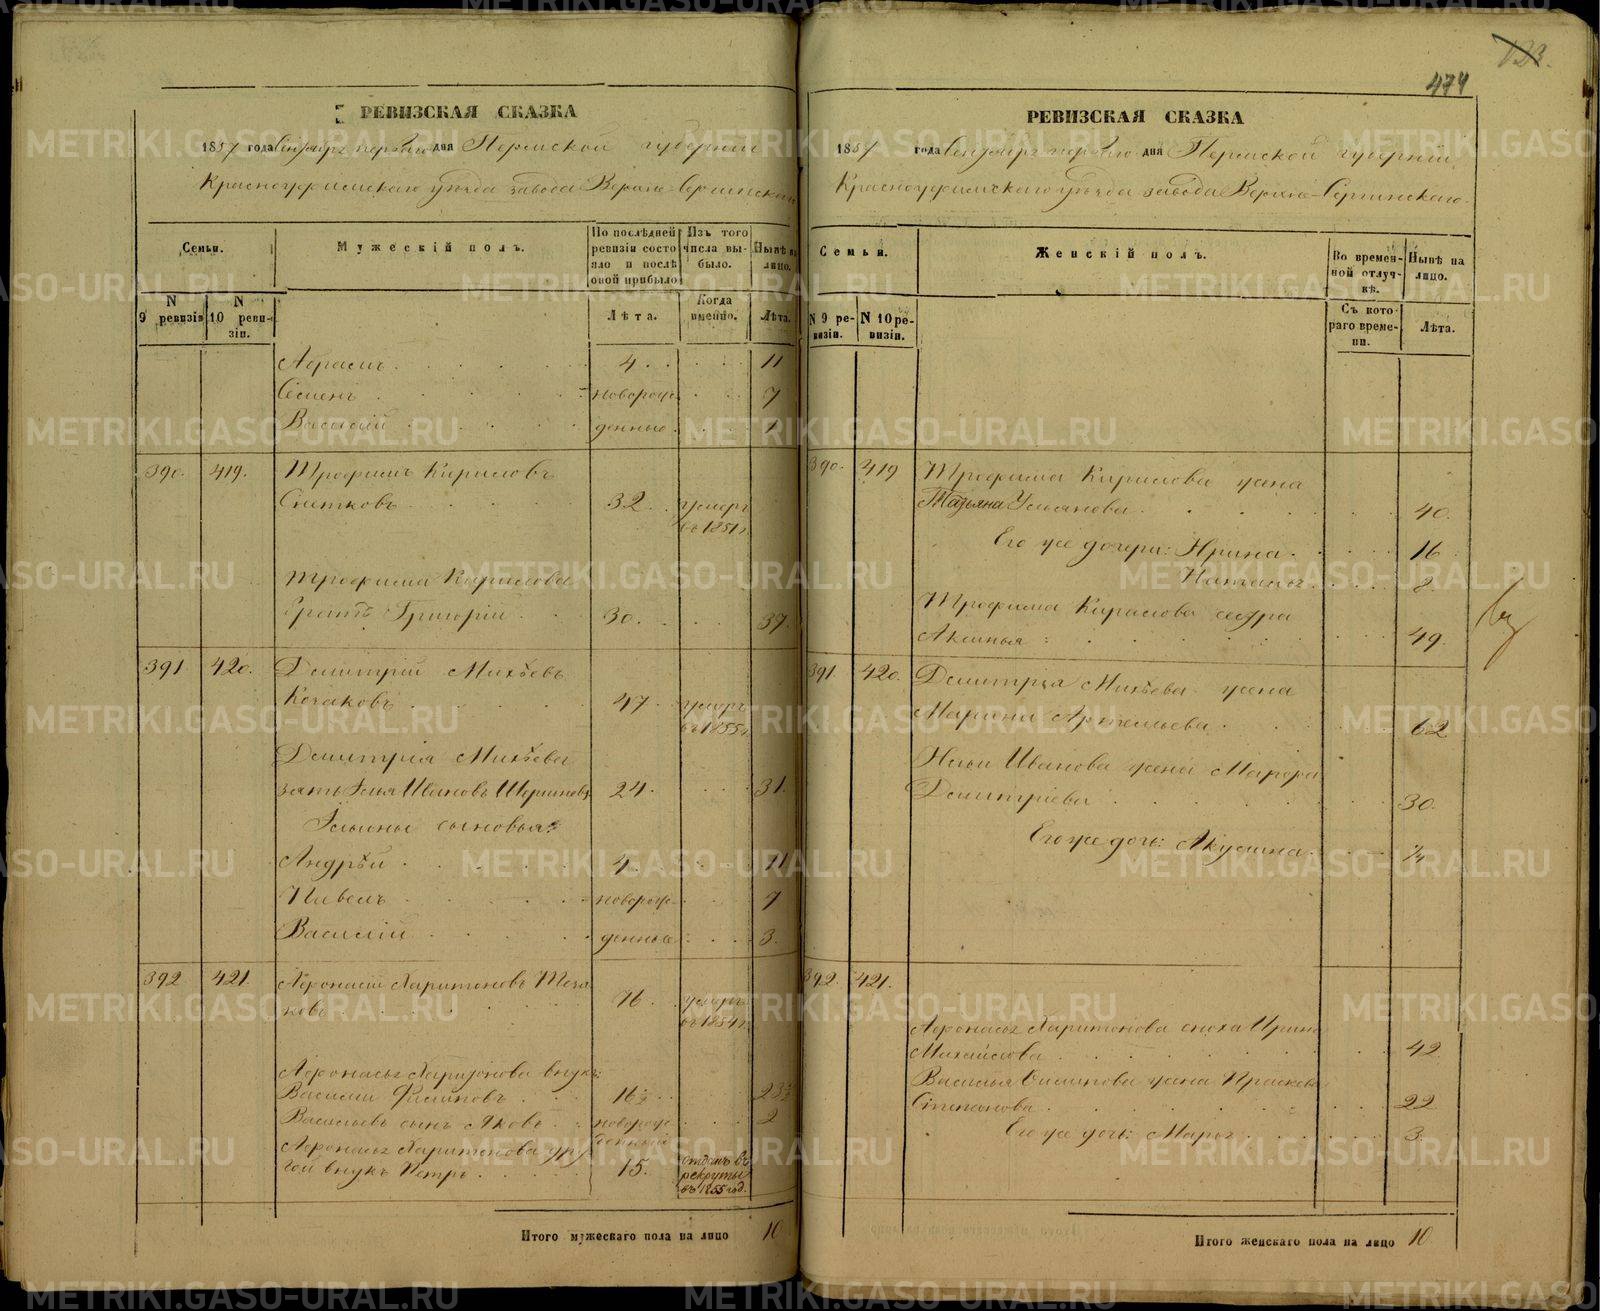 123.
474
РЕВИЗСКАЯ СКАЗКА
1857 года Сентября первого дня Пермской губерніи
Красноуфимскаго уѣзда завода Верхне-Сергинскаго
Семьи.
Мужескій полъ.
По послѣдней ревизіи состояло и послѣ оной прибыло
Изъ того числа выбыло.
Нынѣ на лицо.
N 9 ревизіи
N 10 ревизіи.
Лѣта.
Когда именно.
Лѣта.
4. 11
Семенъ новорож- 7
Василій денные 1
390. 419. Трофимъ Кириловъ
32. умеръ
въ 1851 г.
Трофима Кирилова
братъ Григорій 30. 37.
391 420. Дмитрій Михѣевъ
47 умеръ
въ 1855 г.
Дмитрія Михѣева
зять Илья Ивановъ 24. 31.
Ильины сыновья:
Андрѣй 4. 11
Павелъ новорож- 7
Василій денные 3.
392 421. Афонасій Харитоновъ
76. умеръ
въ 1854 г.
Афонасья Харитонова внукъ
Василій Филиповъ 16½ 23½
Васильевъ сынъ Яковъ новорож- 2
денный
Афонасья Харитонова дру-
гой внукъ Петръ 15. отданъ въ
рекруты
въ 1855 год.
Итого мужескаго пола на лицо 10
РЕВИЗСКАЯ СКАЗКА
1857 года Сентября первого дня Пермской губерніи
Красноуфимскаго уѣзда завода Верхне-Сергинскаго.
Семьи.
Женскій полъ.
Во временной отлучкѣ.
Нынѣ на лицо.
N 9 ревизіи.
N 10 ревизіи.
Съ котораго времени.
Лѣта.
390. 419 Трофима Кирилова жена
Татьяна Ульянова 40.
Его же дочери: Ирина 16
Наталья 8.
Трофима Кирилова сестра
Аксинья 49.
391. 420. Дмитрія Михѣева жена
Марина Артемьева 62
Ильи Иванова жена Марфа
Дмитріева 30.
Его же дочь: Акулина
392. 421.
Афонасья Харитонова сноха Ирина
Михайлова 42
Василья Филипова жена Прасковья
Степанова 22
Его же дочь: Марья 3.
Итого женскаго пола на лицо 10
METRIKI.GASO-URAL.RU